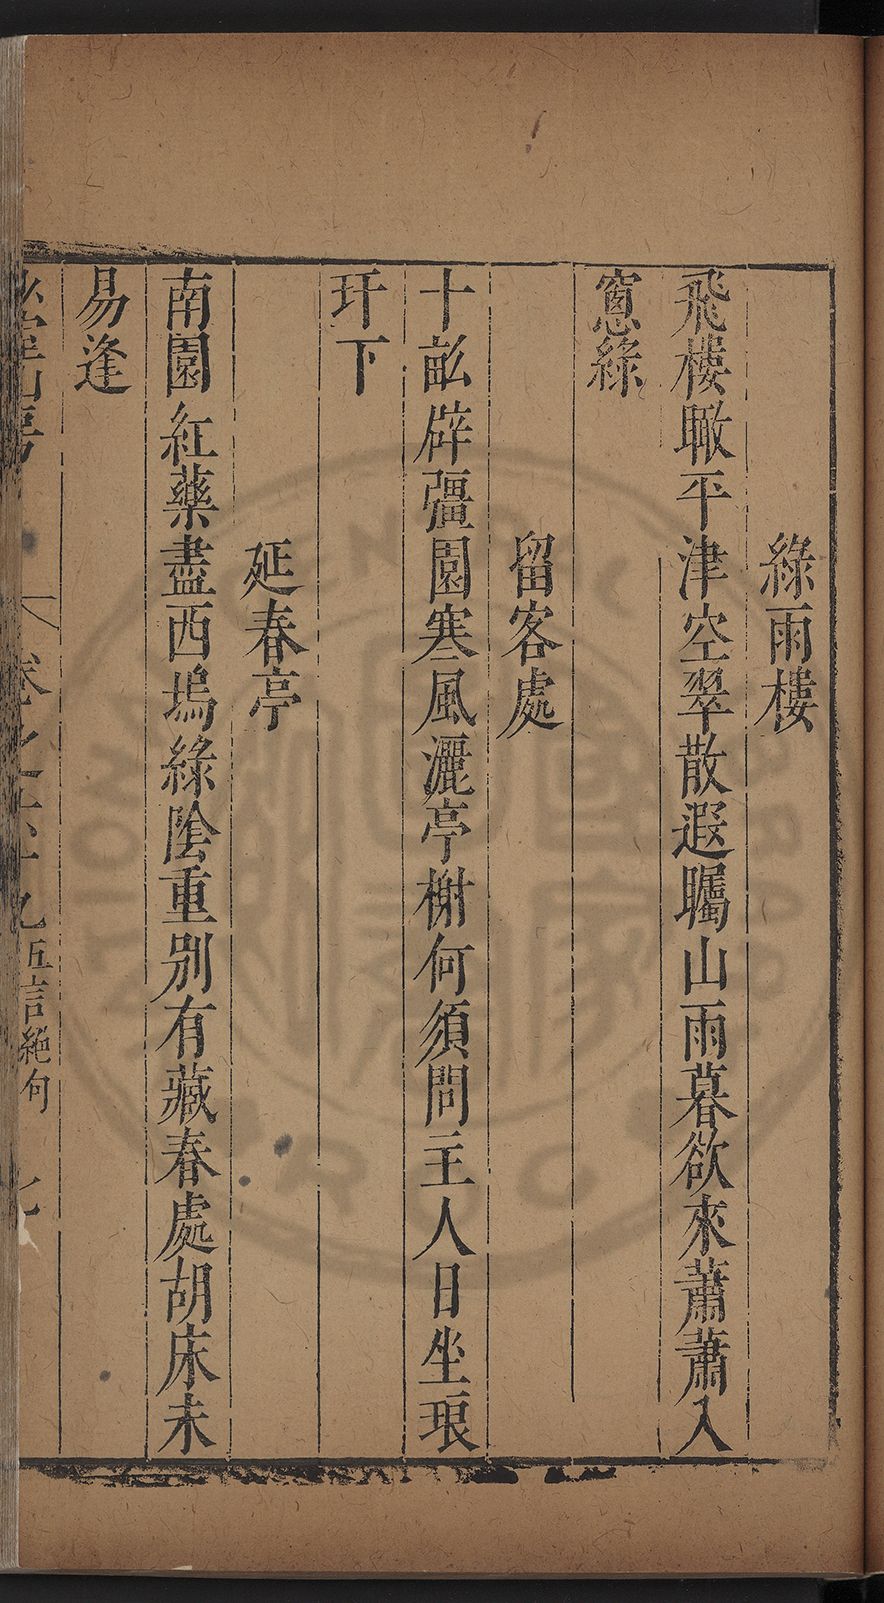 綠雨樓
飛樓瞰平津空翠散遐矚山雨暮欲來蕭蕭入
窻綠
留客處
十畝辟彊園寒風灑亭榭何須問主人日坐琅
玕下
延春亭
南園紅藥盡西塢綠陰重別有藏春處胡床未
易逢
卷之六十九五言絕句